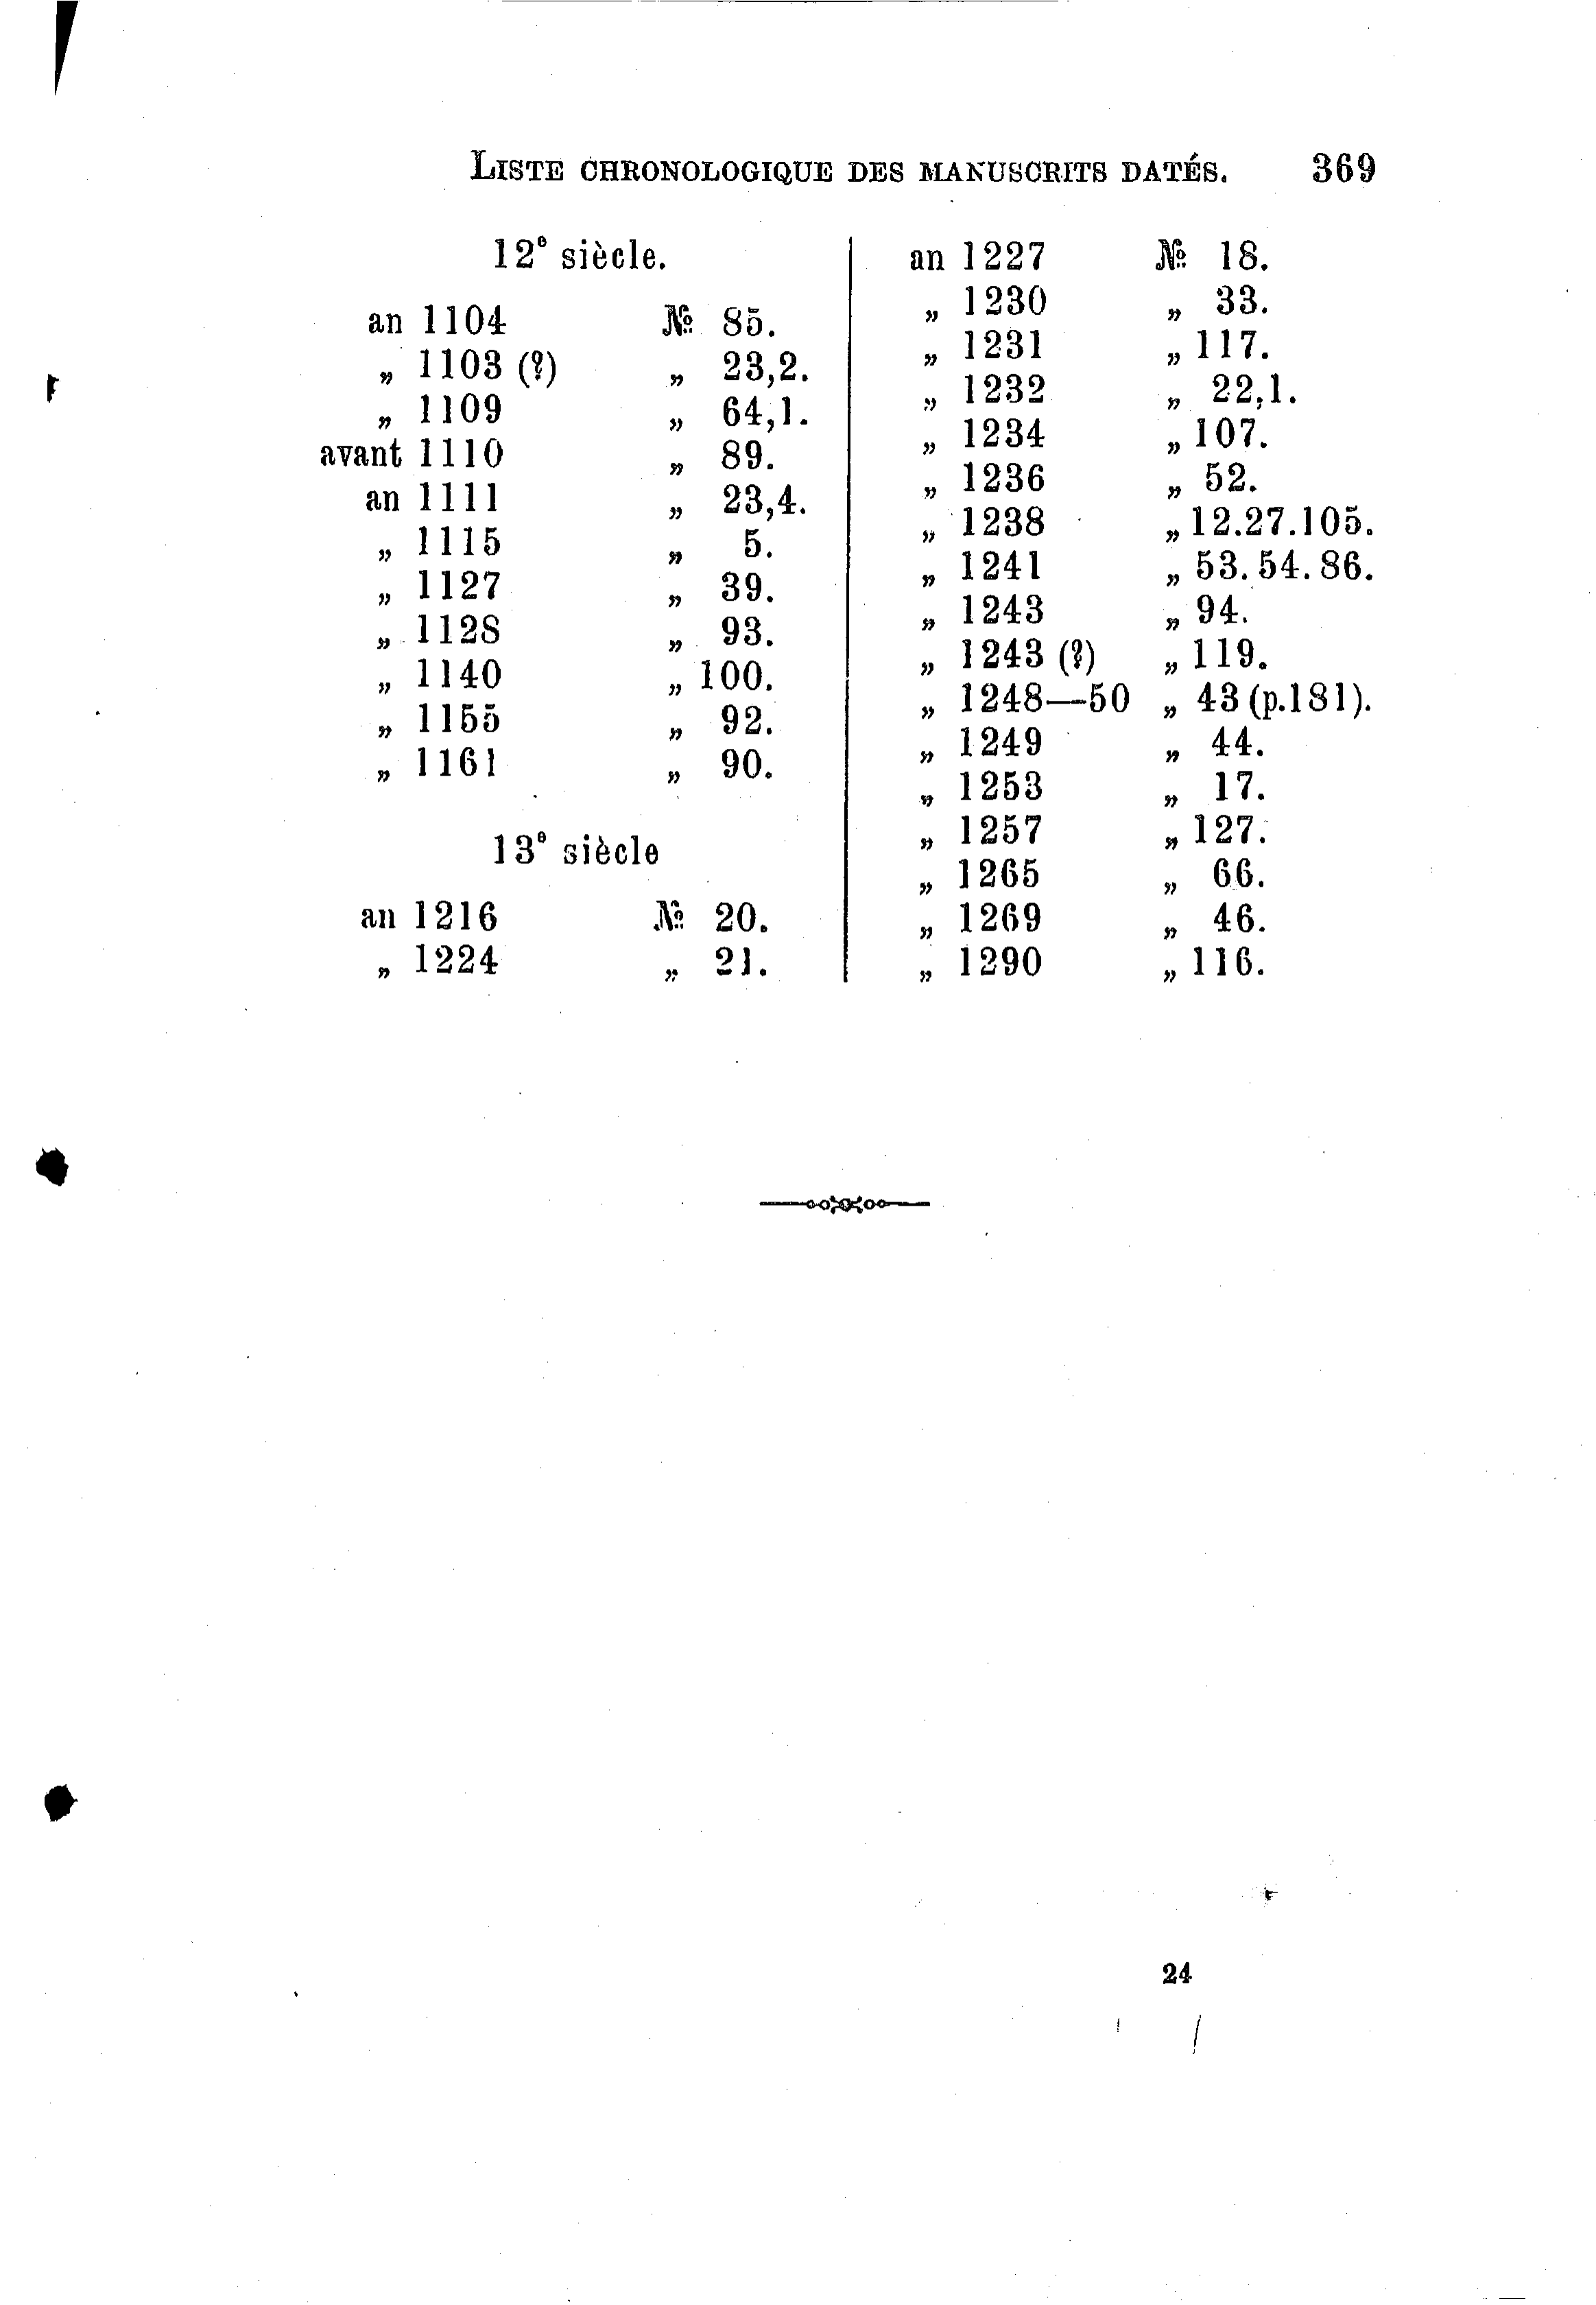 LISTE CHRONOLOGIQUE DES MANUSCRITS DATÉS. 369
12e siècle.
an 1104 № 85.
„ 1103 (?) „ 23,2.
„ 1109 „ 64,1.
avant 1110 „ 89.
an 1111 „ 23,4.
„ 1115 „ 5.
„ 1127 „ 39.
„ 1128 „ 93.
„ 1140 „ 100.
„ 1155 „ 92.
„ 1161 „ 90.
13e siècle
an 1216 № 20.
„ 1224 „ 21.
an 1227 № 18.
„ 1230 „ 33.
„ 1231 „ 117.
„ 1232 „ 22,1.
„ 1234 „ 107.
„ 1236 „ 52.
„ 1238 „ 12.27.105.
„ 1241 „ 53. 54. 86.
„ 1243 „ 94.
„ 1243 (?) „ 119.
„ 1248—50 „ 43 (p.181).
„ 1249 „ 44.
„ 1253 „ 17.
„ 1257 „ 127.
„ 1265 „ 66.
„ 1269 „ 46.
„ 1290 „ 116.
24